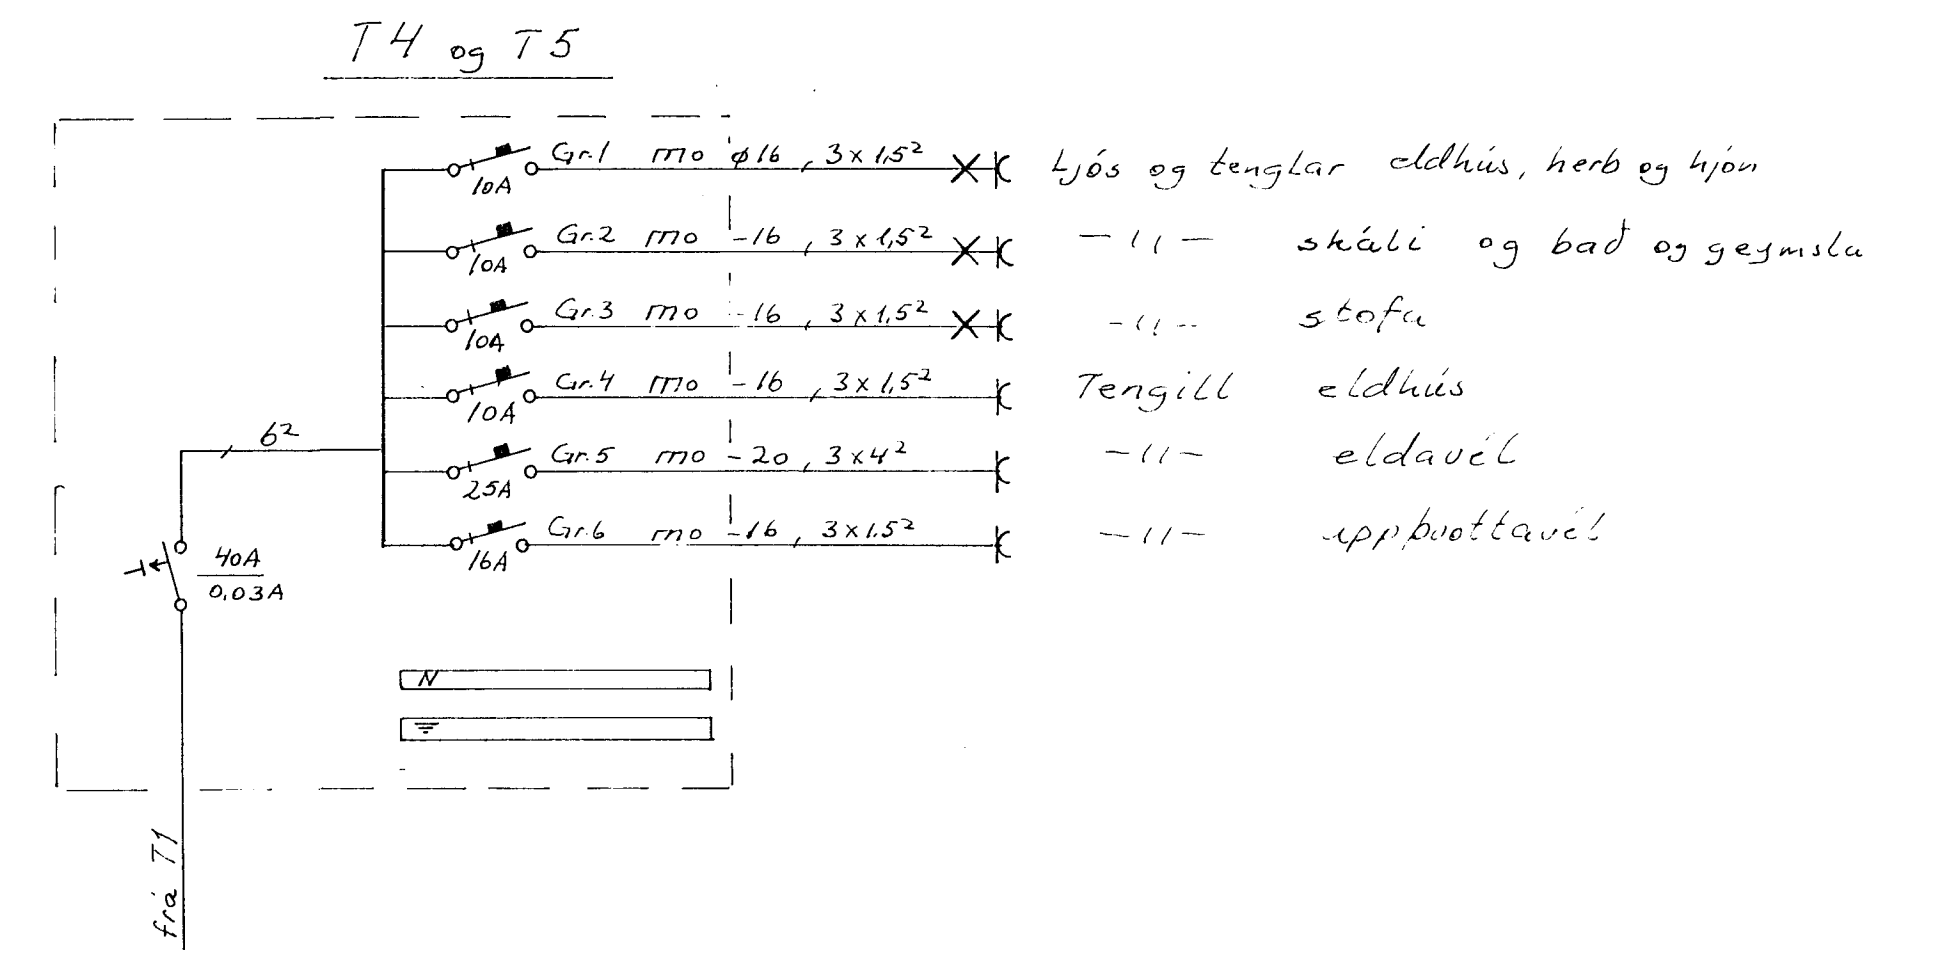 T4 og T5
Gr.1 mo ø16, 3x1,5² Ljós og tenglar eldhús, herb og hjón
10A
Gr.2 mo -16, 3x1,5² -〃- skáli og bað og geymsla
10A
Gr.3 mo -16, 3x1,5² -〃- stofa
10A
Gr.4 mo -16, 3x1,5² Tengill eldhús
10A
6²
Gr.5 mo -20, 3x4² -〃- eldavél
25A
Gr.6 mo -16, 3x1.5² -〃- uppþvottavél
16A
40A
0,03A
N
frá T1